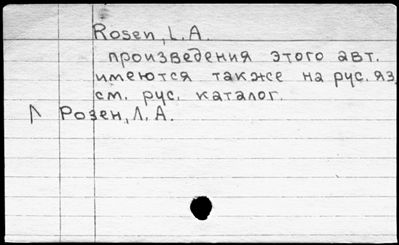 Rosen, L.A.
произведения этого авт.
имеются также на рус. яз.
см. рус. каталог.
Л Розен, Л.А.